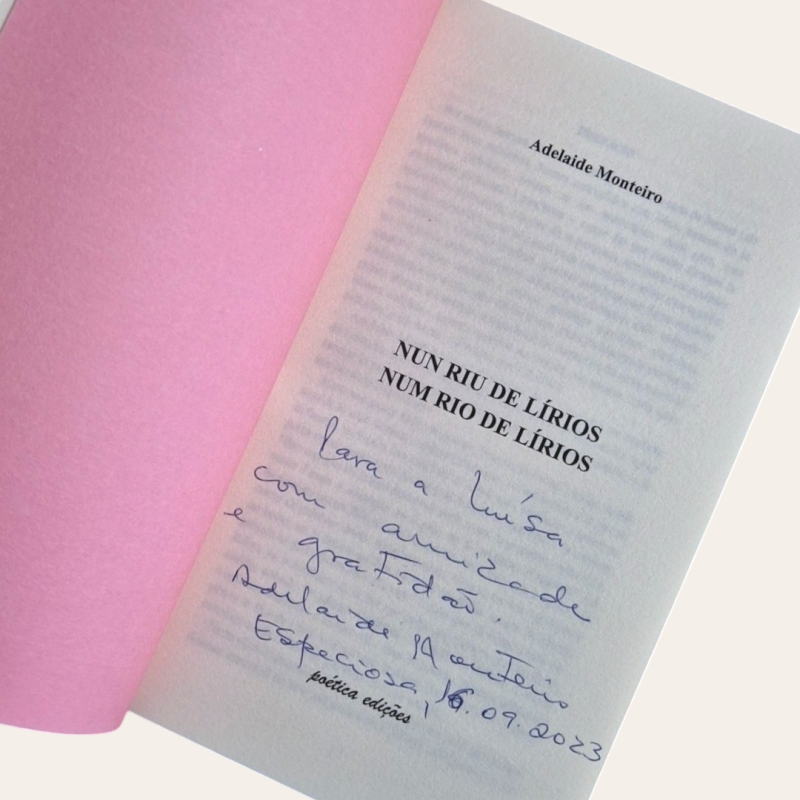 Adelaide Monteiro
NUN RIU DE LÍRIOS
NUM RIO DE LÍRIOS
Para a Luísa
com amizade
e gratidão.
Adelaide Monteiro
Especiosa, 16.09.2023
poética edições